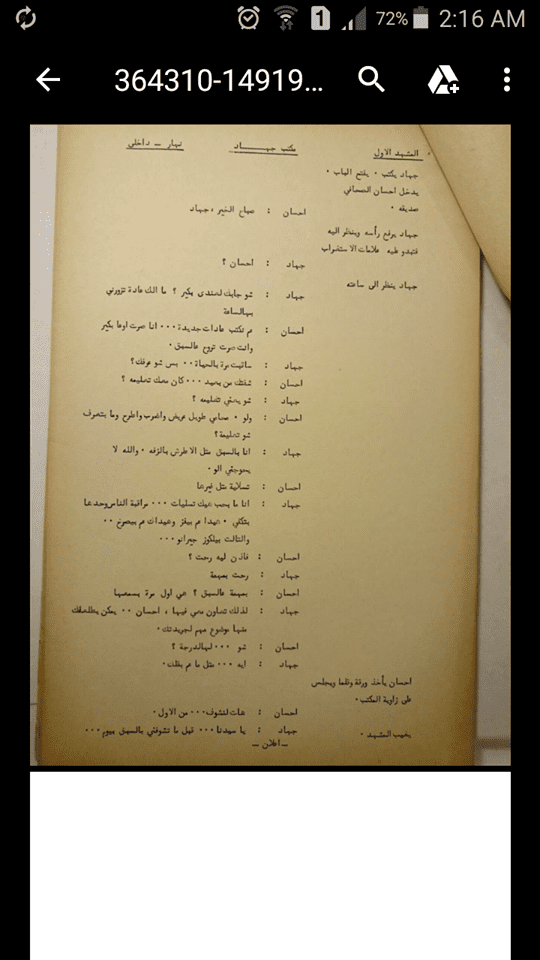 72% 2:16 AM
364310-14919...
المشهد الاول مكتب جهاد نهار - داخلي
جهاد يكتب ٠ يفتح الباب ٠
يدخل احسان الصحافي
صديقه ٠
احسان : صباح الخير ، جهاد
جهاد يرفع رأسه وينظر اليه
فتبدو عليه علامات الاستغراب
جهاد : احسان ؟
جهاد ينظر الى ساعته
جهاد : شو جابك لعندي بكير ؟ ما الك عادة تزورني
بهالساعة
احسان : عم تكتب عادات جديدة ٠٠٠ انا صرت اوعا بكير
وانت صرت تروح عالسبق ٠
جهاد : ساقبت مرة بالحياة ٠٠ بس شو عرفك؟
احسان : شفتك من بعيد ٠٠٠ كان معك تعليمه ؟
جهاد : شو يعني تعليمه ؟
احسان : ولو ٠ صحافي طويل عريض واضرب واطرح وما بتعرف
شو تعليمة؟
جهاد : انا بالسبق مثل الاطرش بالزفه ٠ والله لا
يحوجني الو ٠
احسان : تسلاية مثل غيرها
جهاد : انا ما بحب هيك تسليات ٠٠٠ مراقبة الناس وحدها
بتكفي ٠ هيدا عم ينقز وهيدات عم بيصرخ ٠٠
والتالت بيلكوز جيرانو ٠٠٠
احسان : فاذن ليه رحت ؟
جهاد : رحت بمهمة
احسان : بمهمة عالسبق ؟ هي اول مرة بسمعها
جهاد : لذلك تعاون معي فيها ، احسان ٠٠ يمكن يطلعلك
منها موضوع مهم لجريدتك ٠
احسان : شو ٠٠٠ لهالدرجة ؟
جهاد : ايه ٠٠٠ مثل ما عم بقلك ٠
احسان يأخذ ورقة وقلما ويجلس
على زاوية المكتب ٠
احسان : هات لنشوف ٠٠٠ من الاول ٠
جهاد : يا سيدنا ٠٠٠ قبل ما تشوفني بالسبق بيوم ٠٠٠
يغيب المشهد ٠
- اعلان -